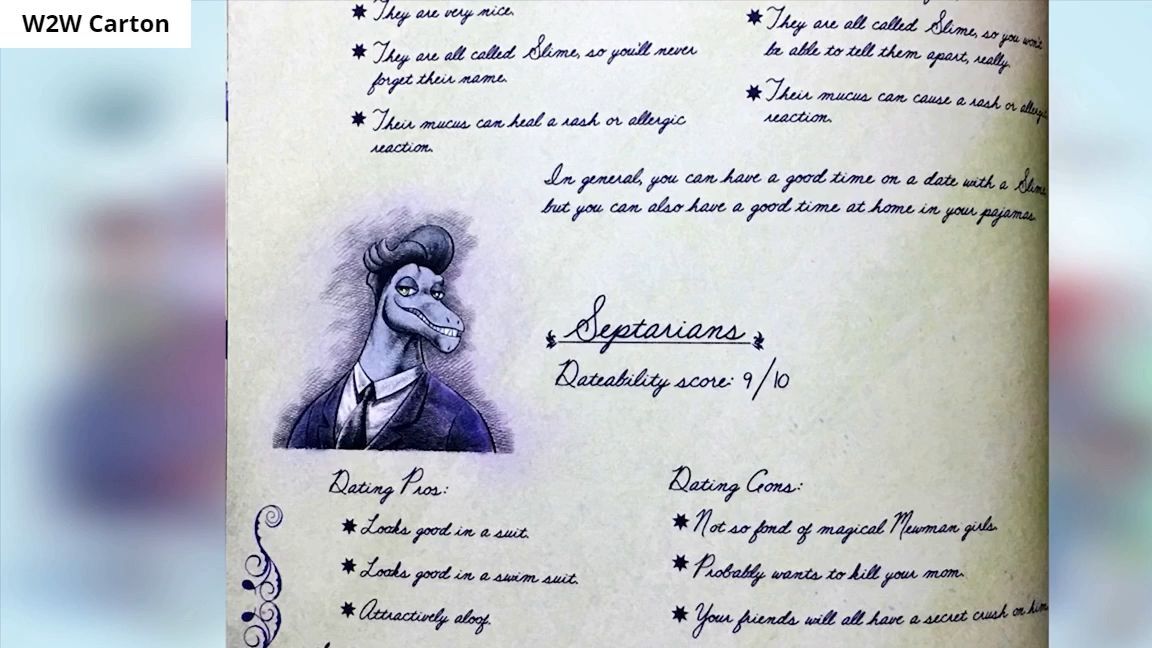 W2W Carton
They are very nice.
They are all called Slime, so you'll never
forget their name.
Their mucus can heal a rash or allergic
reaction.
They are all called Slime, so you won't
be able to tell them apart, really.
Their mucus can cause a rash or allergic
reaction.
In general, you can have a good time on a date with a Slime,
but you can also have a good time at home in your pajamas.
Septarians
Dateability score: 9/10
Dating Pros:
Looks good in a suit.
Looks good in a swim suit.
Attractively aloof.
Dating Cons:
Not so fond of magical Mewman girls.
Probably wants to kill your mom.
Your friends will all have a secret crush on him